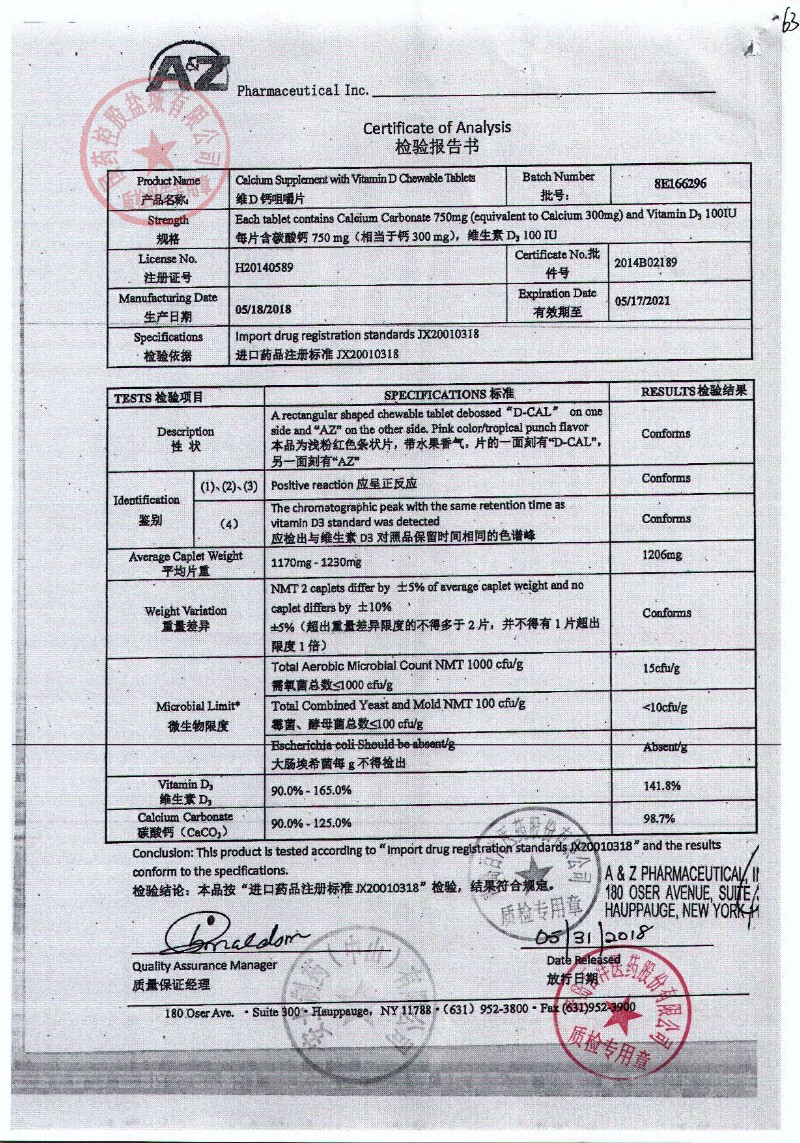 63
A&Z
Pharmaceutical Inc.
Certificate of Analysis
检验报告书
Product Name
产品名称:
Calcium Supplement with Vitamin D Chewable Tablets
维D钙咀嚼片
Batch Number
批号:
8E166296
Strength
规格
Each tablet contains Calcium Carbonate 750mg (equivalent to Calcium 300mg) and Vitamin D₃ 100IU
每片含碳酸钙 750 mg（相当于钙 300 mg），维生素 D₃ 100 IU
License No.
注册证号
H20140589
Certificate No.批
件号
2014B02189
Manufacturing Date
生产日期
05/18/2018
Expiration Date
有效期至
05/17/2021
Specifications
检验依据
Import drug registration standards JX20010318
进口药品注册标准 JX20010318
TESTS 检验项目
SPECIFICATIONS 标准
RESULTS 检验结果
Description
性 状
A rectangular shaped chewable tablet debossed "D-CAL" on one
side and "AZ" on the other side. Pink color/tropical punch flavor
本品为浅粉红色条状片，带水果香气，片的一面刻有"D-CAL"，
另一面刻有"AZ"
Conforms
Identification
鉴别
(1)、(2)、(3)
Positive reaction 应呈正反应
Conforms
（4）
The chromatographic peak with the same retention time as
vitamin D3 standard was detected
应检出与维生素 D3 对照品保留时间相同的色谱峰
Conforms
Average Caplet Weight
平均片重
1170mg - 1230mg
1206mg
Weight Variation
重量差异
NMT 2 caplets differ by ±5% of average caplet weight and no
caplet differs by ±10%
±5%（超出重量差异限度的不得多于 2 片，并不得有 1 片超出
限度 1 倍）
Conforms
Microbial Limit*
微生物限度
Total Aerobic Microbial Count NMT 1000 cfu/g
需氧菌总数≤1000 cfu/g
15cfu/g
Total Combined Yeast and Mold NMT 100 cfu/g
霉菌、酵母菌总数≤100 cfu/g
<10cfu/g
Escherichia coli Should be absent/g
大肠埃希菌每 g 不得检出
Absent/g
Vitamin D₃
维生素 D₃
90.0% - 165.0%
141.8%
Calcium Carbonate
碳酸钙（CaCO₃）
90.0% - 125.0%
98.7%
Conclusion: This product is tested according to "Import drug registration standards JX20010318" and the results
conform to the specifications.
检验结论：本品按"进口药品注册标准 JX20010318"检验，结果符合规定。
A & Z PHARMACEUTICAL, I
180 OSER AVENUE, SUITE
HAUPPAUGE, NEW YORK
05/31/2018
Quality Assurance Manager
质量保证经理
Date Released
放行日期
180 Oser Ave. • Suite 300 • Hauppauge, NY 11788 • (631) 952-3800 • Fax (631)952-3900
国药控股盐城有限公司
质检专用章
医药股份有限公司
质检专用章
制药（中山）有限公司
医药股份有限公司
质检专用章